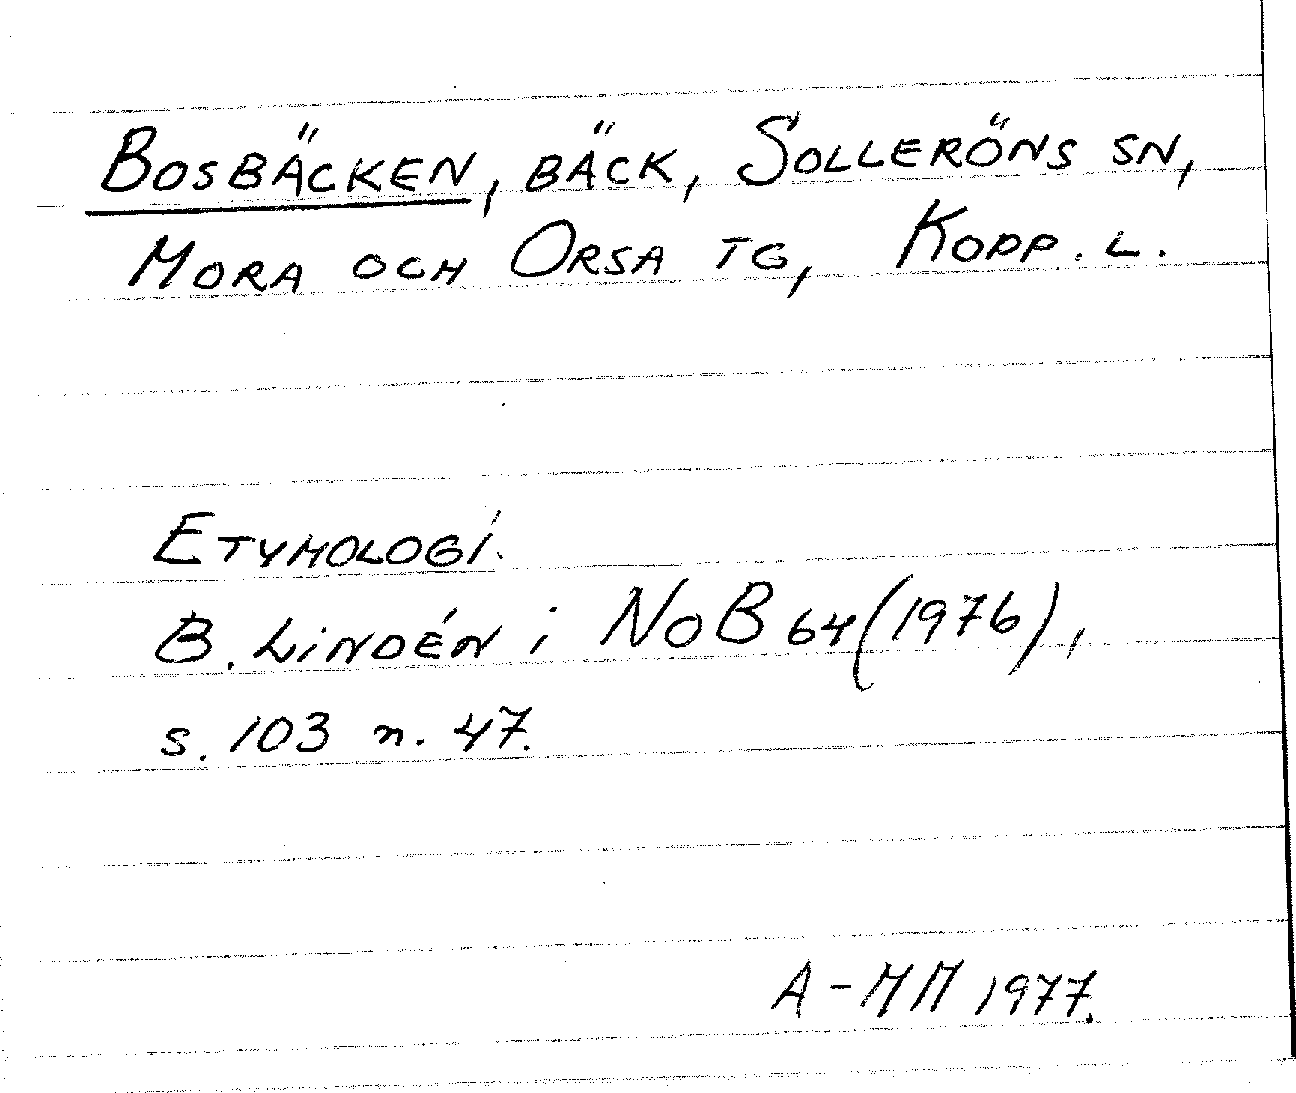 BOSBÄCKEN, BÄCK, SOLLERÖNS SN,
MORA OCH ORSA TG, KOPP. L.
ETYMOLOGI.
B. LINDÉN i NoB 64 (1976),
s. 103 n. 47.
A-MM 1977.